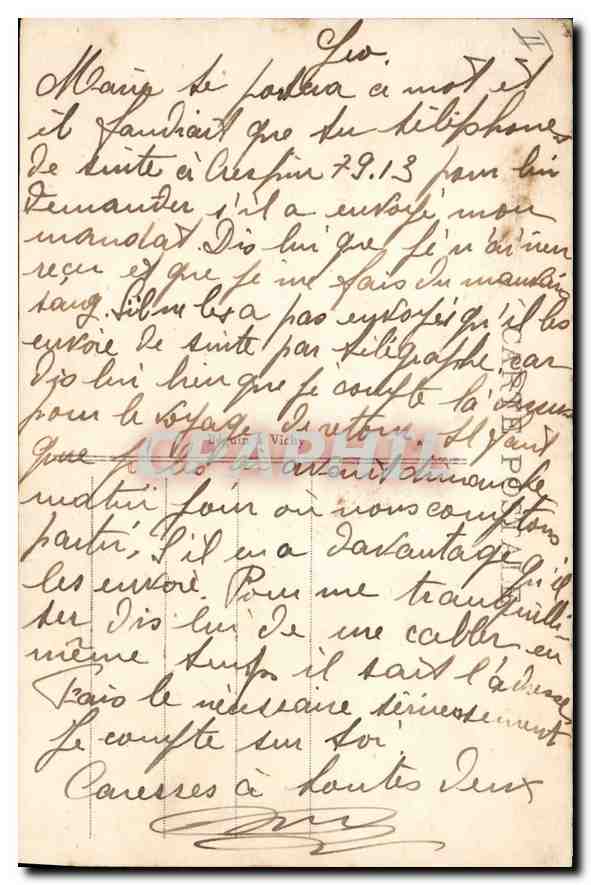 II
Geo.
Marie te portera ce mot et
il faudrait que tu téléphones
de suite à Crespin 79.13 pour lui
demander s'il a envoyé mon
mandat. Dis lui que je n'ai rien
reçu et que je me fais du mauvais
sang. S'il ne les a pas envoyés qu'il les
envoie de suite par télégraphe, car
dis lui bien que je compte là dessus
pour le voyage de retour. Il faut
que je les ai avant dimanche
matin jour où nous comptons
partir, s'il en a davantage qu'il
les envoie. Pour me tranquilli-
ser dis lui de me cabler en
même temps il sait l'adresse
Fais le nécessaire sérieusement
Je compte sur toi.
Caresses à toutes deux
CARTE POSTALE
Vichy
CPAPHIL